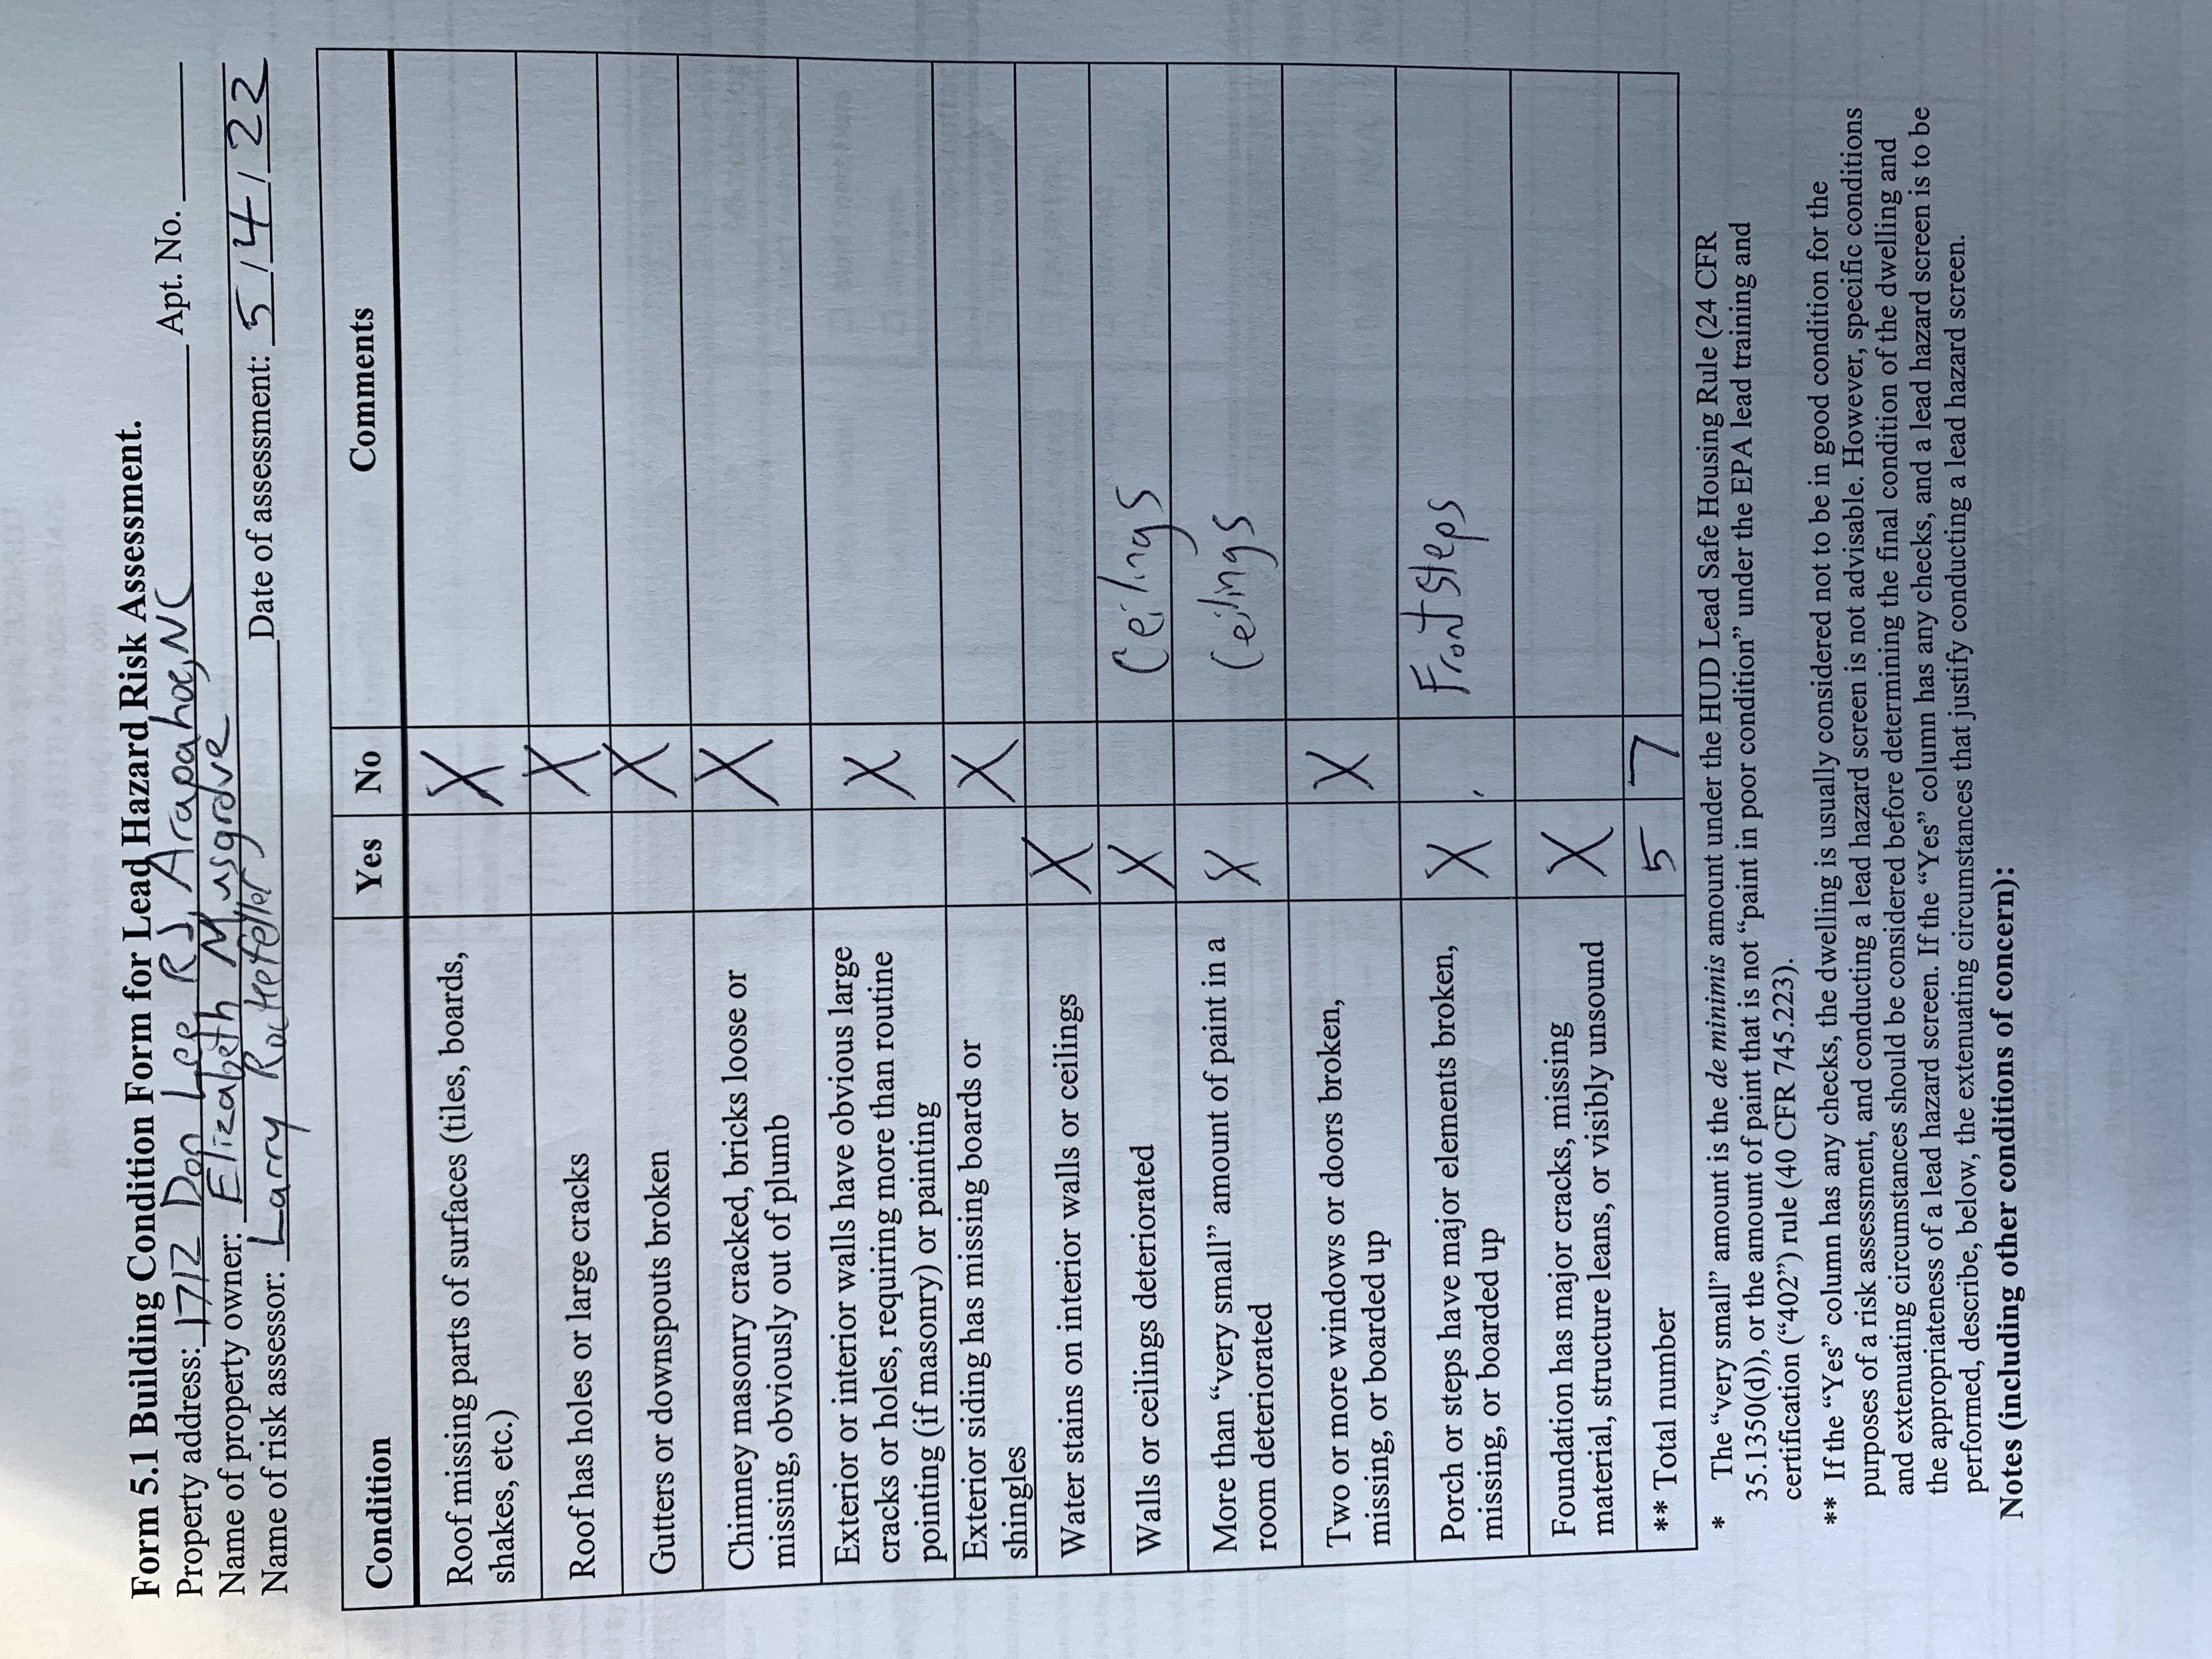 Form 5.1 Building Condition Form for Lead Hazard Risk Assessment.
Property address: 1712 Don Lee Rd, Arapahoe, NC Apt. No.
Name of property owner: Elizabeth Musgrove
Name of risk assessor: Larry Rockefeller Date of assessment: 5/4/22
Condition Yes No Comments
Roof missing parts of surfaces (tiles, boards,
shakes, etc.) X
Roof has holes or large cracks X
Gutters or downspouts broken X
Chimney masonry cracked, bricks loose or
missing, obviously out of plumb X
Exterior or interior walls have obvious large
cracks or holes, requiring more than routine
pointing (if masonry) or painting X
Exterior siding has missing boards or
shingles X
Water stains on interior walls or ceilings X
Walls or ceilings deteriorated X Ceilings
More than “very small” amount of paint in a
room deteriorated X Ceilings
Two or more windows or doors broken,
missing, or boarded up X
Porch or steps have major elements broken,
missing, or boarded up X Front steps
Foundation has major cracks, missing
material, structure leans, or visibly unsound X
** Total number 5 7
* The “very small” amount is the de minimis amount under the HUD Lead Safe Housing Rule (24 CFR
35.1350(d)), or the amount of paint that is not “paint in poor condition” under the EPA lead training and
certification (“402”) rule (40 CFR 745.223).
** If the “Yes” column has any checks, the dwelling is usually considered not to be in good condition for the
purposes of a risk assessment, and conducting a lead hazard screen is not advisable. However, specific conditions
and extenuating circumstances should be considered before determining the final condition of the dwelling and
the appropriateness of a lead hazard screen. If the “Yes” column has any checks, and a lead hazard screen is to be
performed, describe, below, the extenuating circumstances that justify conducting a lead hazard screen.
Notes (including other conditions of concern):